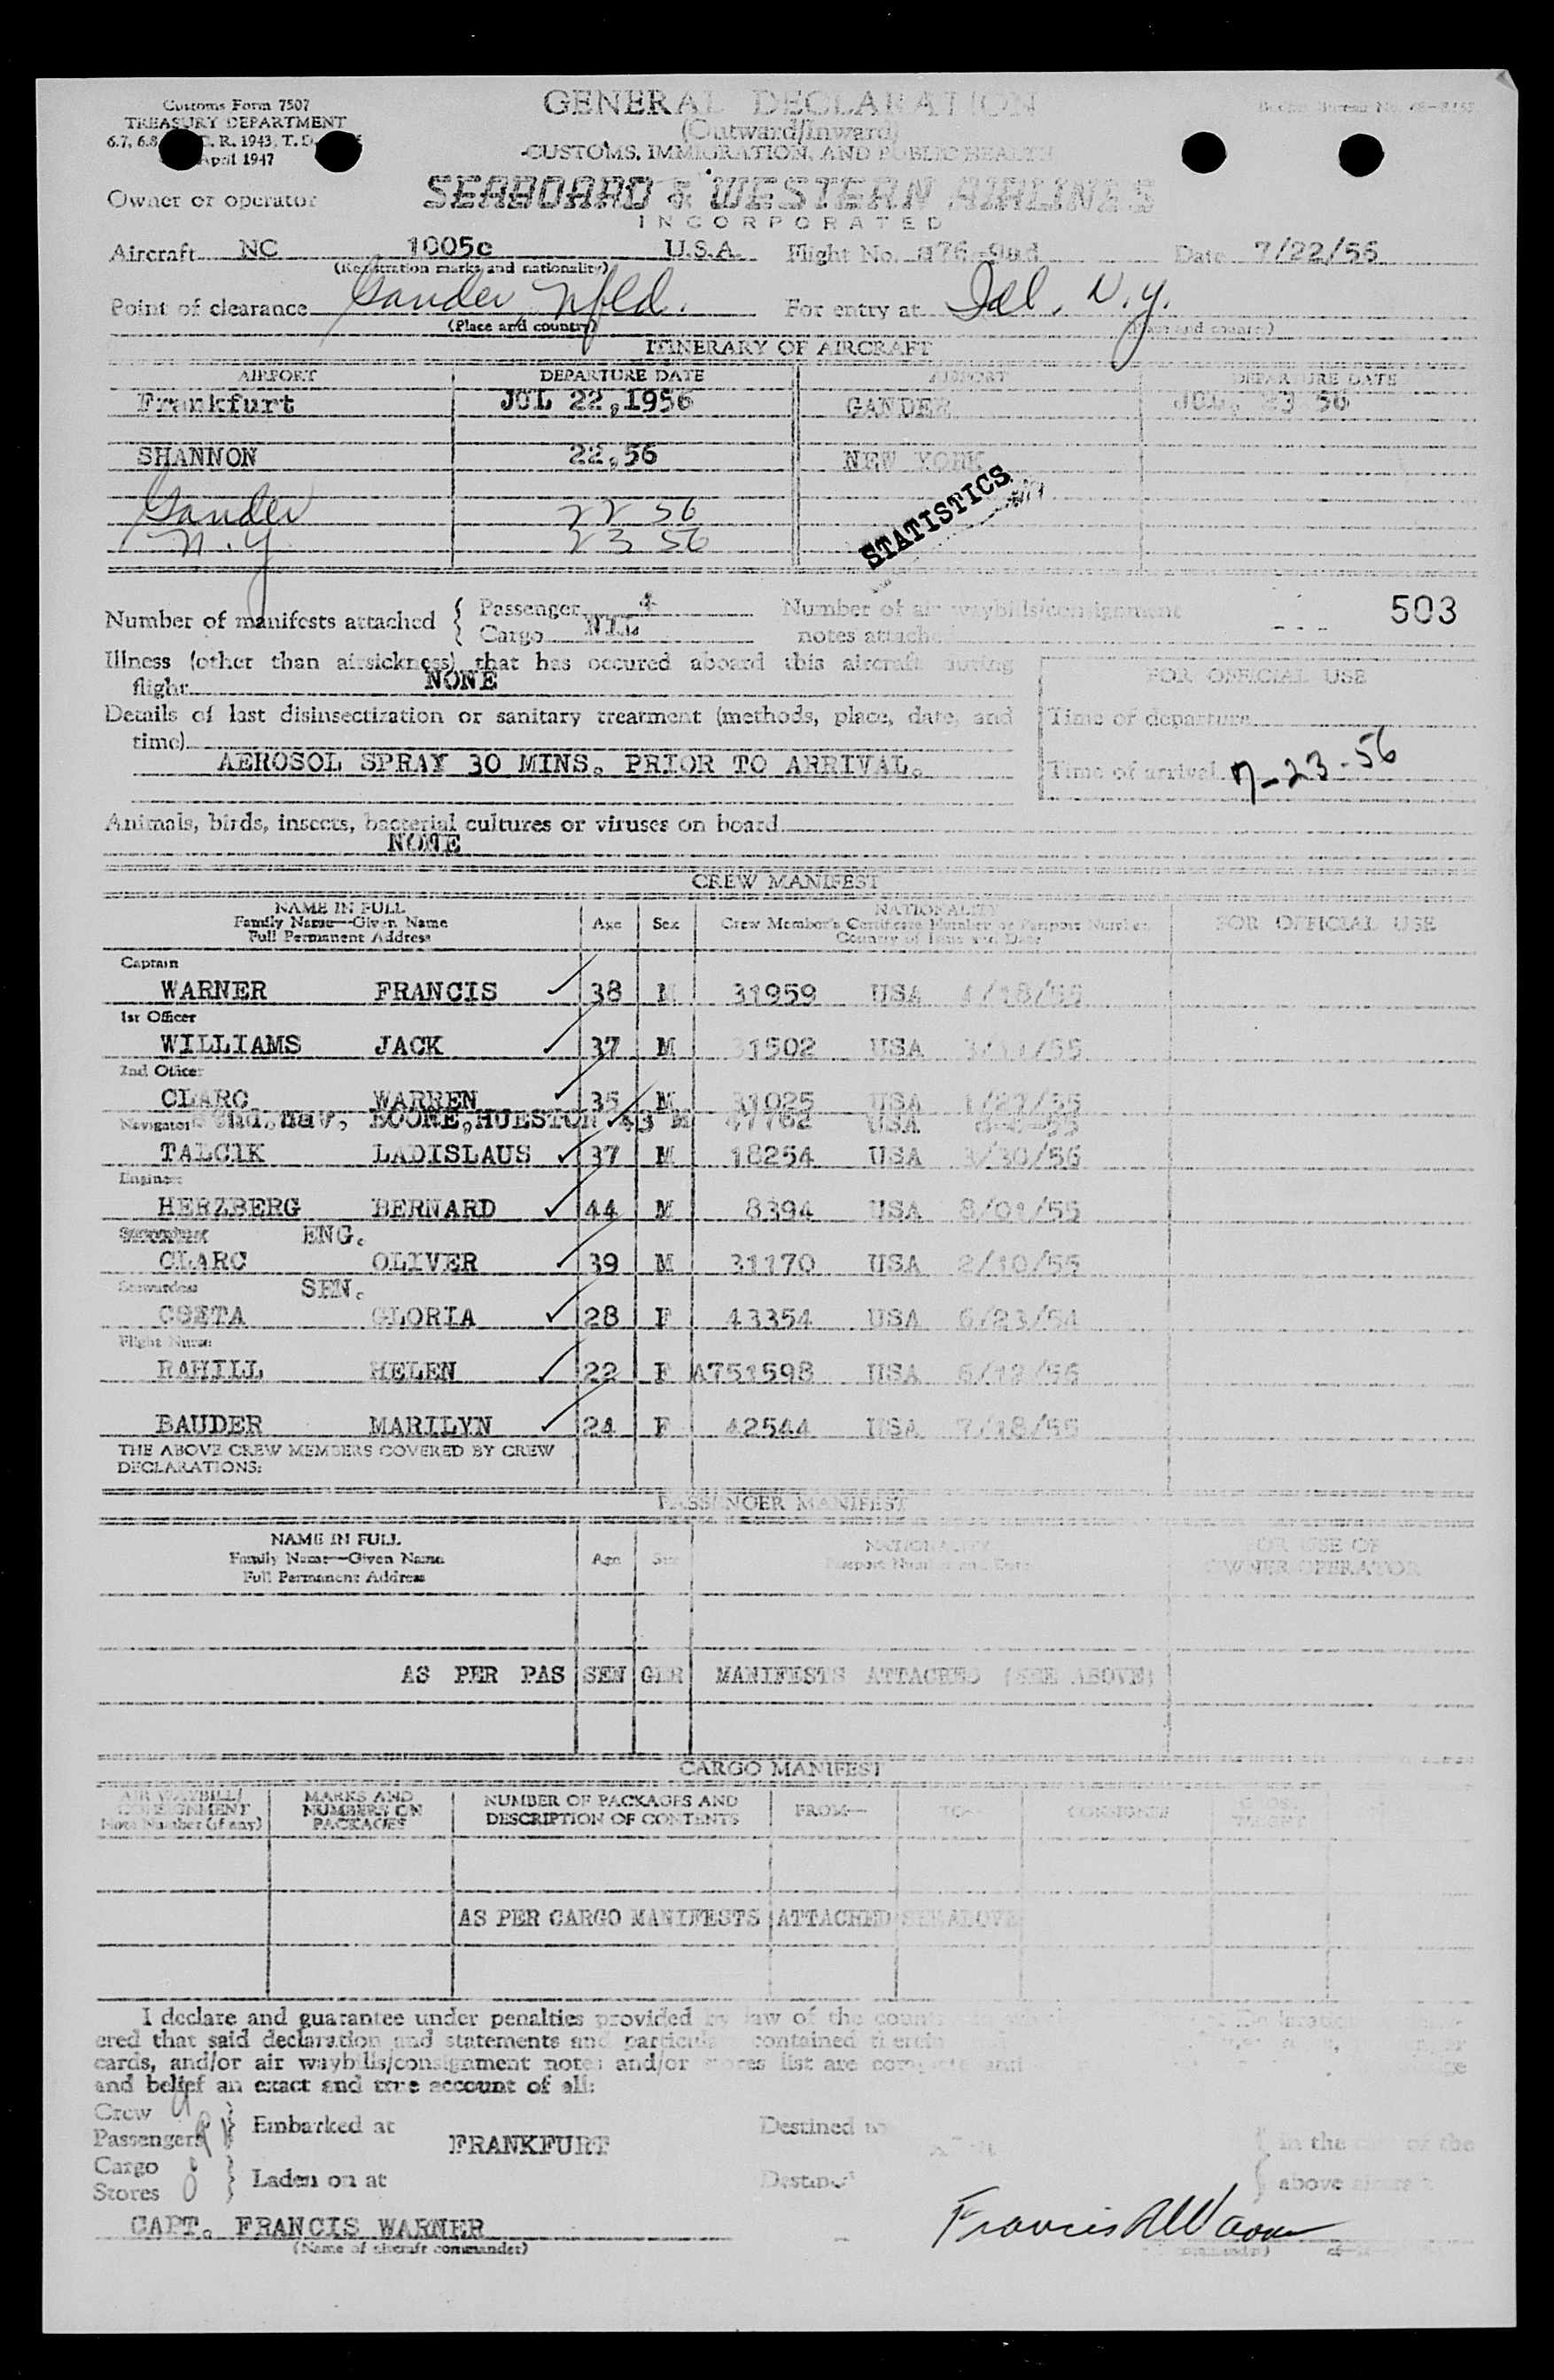 Customs Form 7507
TREASURY DEPARTMENT
April 1947
GENERAL DECLARATION
(Outward/Inward)
CUSTOMS, IMMIGRATION, AND PUBLIC HEALTH
Owner or operator SEABOARD & WESTERN AIRLINES
INCORPORATED
Aircraft NC 1005c U.S.A. Flight No. Date 7/22/56
(Registration marks and nationality)
Point of clearance Gander, Nfld. For entry at Idl, N.Y.
(Place and country) (Place and country)
ITINERARY OF AIRCRAFT
AIRPORT DEPARTURE DATE AIRPORT DEPARTURE DATE
Frankfurt JUL 22,1956 GANDER JUL, 23 56
SHANNON 22,56 NEW YORK
STATISTICS
Gander 22 56
N.Y 23 56
Number of manifests attached { Passenger 4 Number of air waybills/consignment 503
Cargo NIL notes attached
Illness (other than airsickness) that has occured aboard this aircraft during
flight NONE
FOR OFFICIAL USE
Details of last disinsectization or sanitary treatment (methods, place, date, and
time)
Time of departure
AEROSOL SPRAY 30 MINS. PRIOR TO ARRIVAL.
Time of arrival 7-23-56
Animals, birds, insects, bacterial cultures or viruses on board
NONE
CREW MANIFEST
NAME IN FULL
Family Name—Given Name
Full Permanent Address
Age Sex
NATIONALITY
Crew Member's Certificate Number or Passport Number,
Country of Issue and Date
FOR OFFICIAL USE
Captain
WARNER FRANCIS 38 M 31959 USA 4/18/55
1st Officer
WILLIAMS JACK 37 M 31502 USA
2nd Officer
CLARC WARREN 35 M 31025 USA 1/27/55
Navigator 2nd.nav, BOONE,HUESTON 43 M 47762 USA
TALCIK LADISLAUS 37 M 18254 USA 3/30/56
Engineer
HERZBERG BERNARD 44 M 8394 USA 8/01/55
ENG.
CLARC OLIVER 39 M 31170 USA 2/10/55
Stewardess SEN.
CSETA GLORIA 28 F 43354 USA 6/23/54
Flight Nurse
RAHILL HELEN 22 F A751598 USA 6/12/56
BAUDER MARILYN 24 F 42544 USA 7/18/55
THE ABOVE CREW MEMBERS COVERED BY CREW
DECLARATIONS:
PASSENGER MANIFEST
NAME IN FULL
Family Name—Given Name
Full Permanent Address
Age Sex
NATIONALITY
Passport Number and Date
FOR USE OF
OWNER OPERATOR
AS PER PASSENGER MANIFESTS ATTACHED (SEE ABOVE)
CARGO MANIFEST
AIR WAYBILL/
CONSIGNMENT
Note Number (if any)
MARKS AND
NUMBERS ON
PACKAGES
NUMBER OF PACKAGES AND
DESCRIPTION OF CONTENTS
FROM— TO— CONSIGNEE
GROSS
WEIGHT
AS PER CARGO MANIFESTS ATTACHED SEE ABOVE
I declare and guarantee under penalties provided by law of the
ered that said declaration and statements and contained therein
cards, and/or air waybills/consignment notes and/or stores list are complete and
and belief an exact and true account of all:
Crew 9
Passengers } Embarked at FRANKFURT Destined to { in the of the
Cargo
Stores 0 } Laden on at Destined above aircraft
CAPT. FRANCIS WARNER Francis R Warner
(Name of aircraft commander)